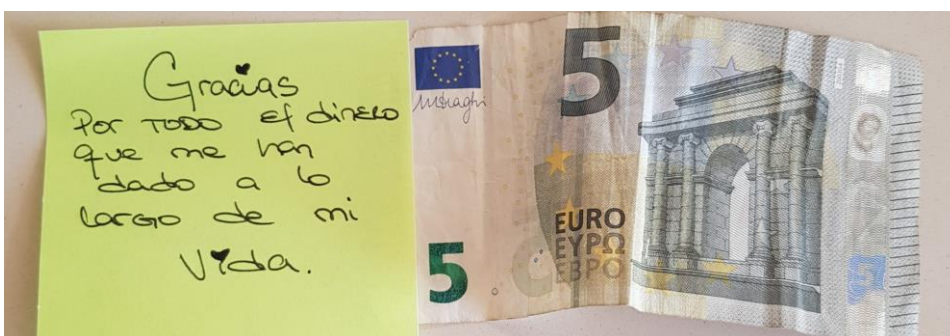 Gracias
Por TODO el dinero
que me han
dado a lo
largo de mi
vida.
5
EURO
ΕΥΡΩ
ЕВРО
5